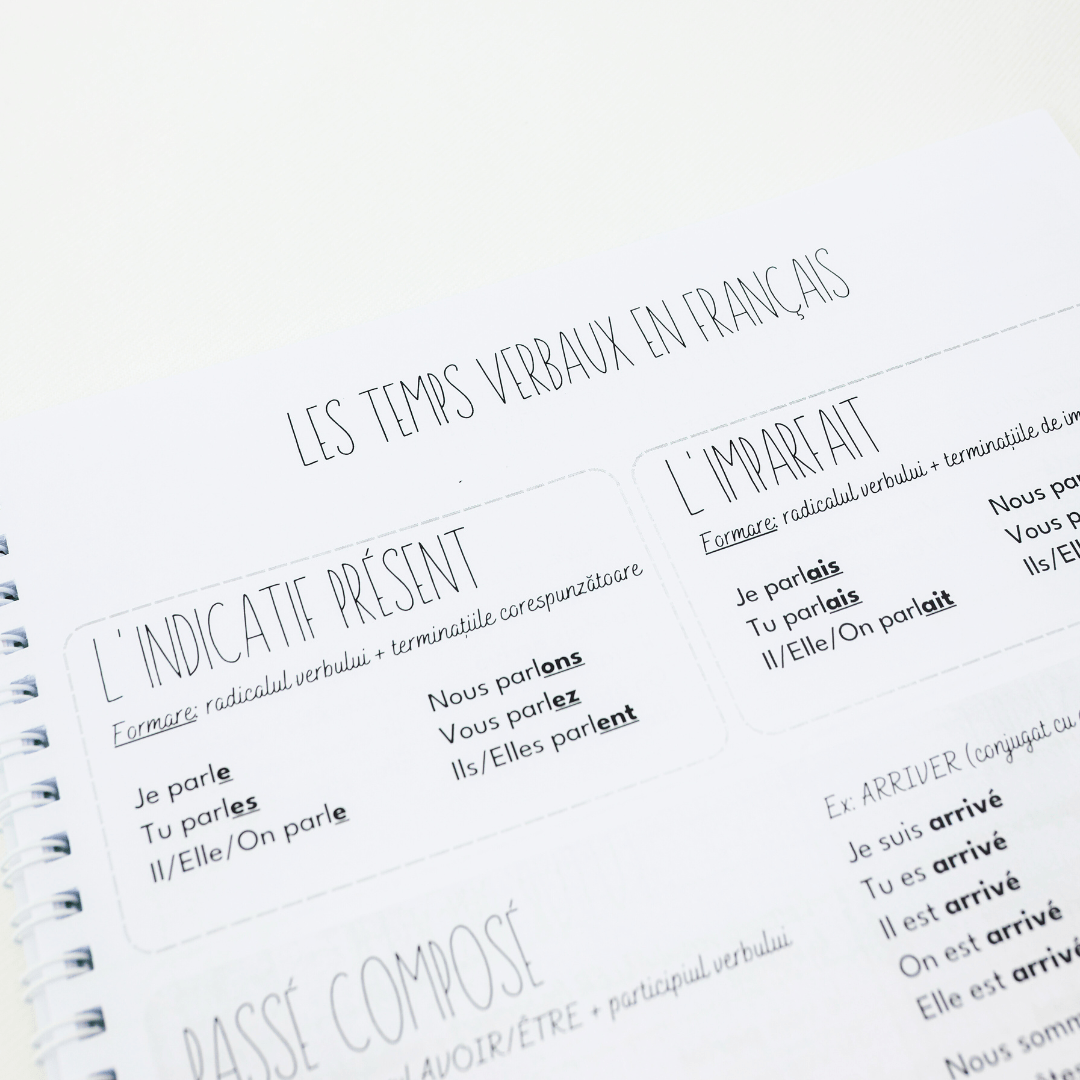 LES TEMPS VERBAUX EN FRANÇAIS
L'INDICATIF PRÉSENT
Formare: radicalul verbului + terminațiile corespunzătoare
Je parle
Tu parles
Il/Elle/On parle
Nous parlons
Vous parlez
Ils/Elles parlent
L'IMPARFAIT
Formare: radicalul verbului + terminațiile de
Je parlais
Tu parlais
Il/Elle/On parlait
Nous
Vous
PASSÉ COMPOSÉ
AVOIR/ÊTRE + participiul verbului
Ex: ARRIVER (conjugat cu
Je suis arrivé
Tu es arrivé
Il est arrivé
On est arrivé
Elle est
Nous